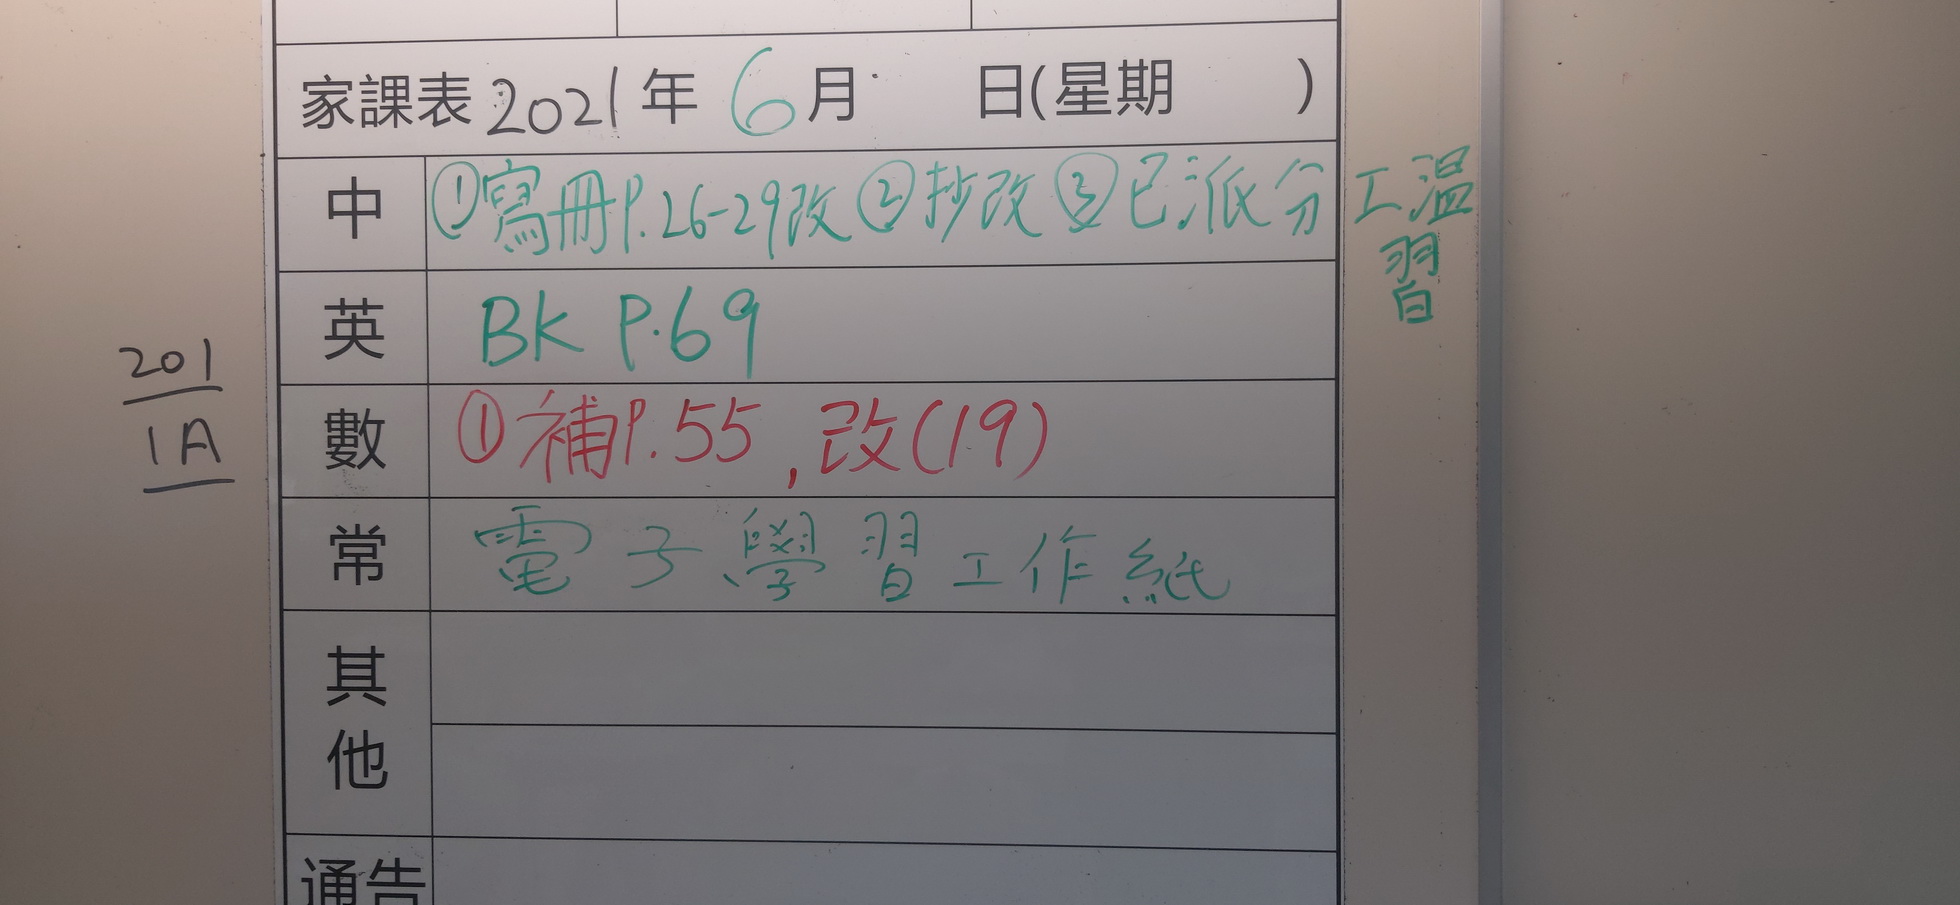 家課表 2021 年 6 月 日(星期 )
中 ①寫冊P.26-29改 ②抄改 ③已派分工溫習
英 BK P.69
201
1A
數 ①補P.55,改(19)
常 電子學習工作紙
其他
通告